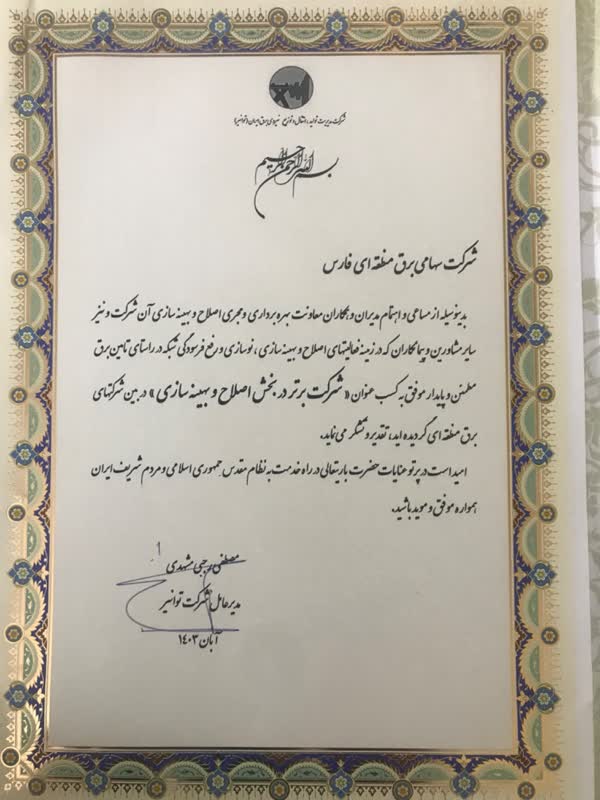 شرکت مدیریت تولید، انتقال و توزیع نیروی برق ایران (توانیر)
بسم الله الرحمن الرحیم
شرکت سهامی برق منطقه ای فارس
بدینوسیله از مساعی و اهتمام مدیران و همکاران معاونت بهره برداری و مجری اصلاح و بهینه سازی آن شرکت و نیز
سایر مشاورین و پیمانکاران که در زمینه فعالیتهای اصلاح و بهینه سازی، نوسازی و رفع فرسودگی شبکه در راستای تامین برق
مطمئن و پایدار موفق به کسب عنوان «شرکت برتر در بخش اصلاح و بهینه سازی» در بین شرکتهای
برق منطقه ای گردیده اید، تقدیر و تشکر می نماید.
امید است در پرتو عنایات حضرت باریتعالی در راه خدمت به نظام مقدس جمهوری اسلامی و مردم شریف ایران
همواره موفق و موید باشید.
مصطفی رجبی مشهدی
مدیرعامل شرکت توانیر
آبان ۱۴۰۳